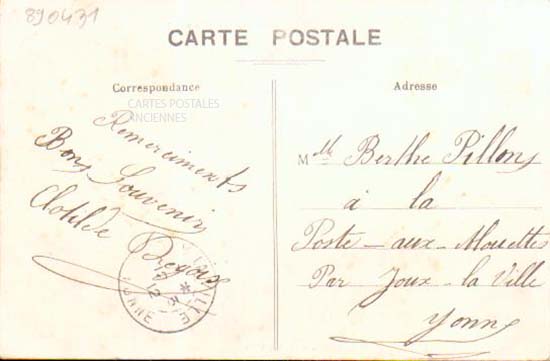 890431
CARTE POSTALE
Correspondance
CARTES POSTALES
ANCIENNES
Remerciments
Bons Souvenirs
Clotilde
Adresse
Mlle Berthe Pillons
à la
Poste-aux-Alouettes
Par Joux-la Ville
Yonne
VILLE
YONNE